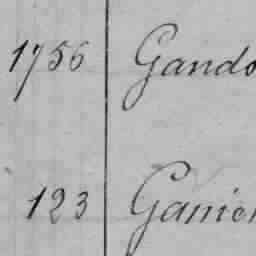 1756 Gando
123 Ganier